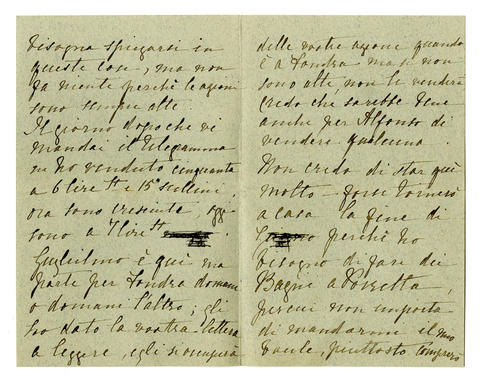 bisogna spiegarsi in
queste cose, ma non
fa niente perchè le azioni
sono sempre alte.
Il giorno dopo che vi
mandai il telegramma
ne ho venduto cinquanta
a 6 lire st e 15 scellini
ora sono cresciute, oggi
sono a 7 lire st
Guglielmo è qui ma
parte per Londra domani
o domani l'altro; gli
ho dato la vostra lettera
a leggere, egli si occuperà
delle vostre azioni quando
è a Londra ma se non
sono alte non le venderà
credo che sarebbe bene
anche per Alfonso di
vendere qualcuna.
Non credo di star quì
molto - forse tornerò
a casa la fine di
perchè ho
bisogno di fare dei
Bagni a Porretta,
perciò non importa
di mandarmi il mio
baule, piuttosto comprerò